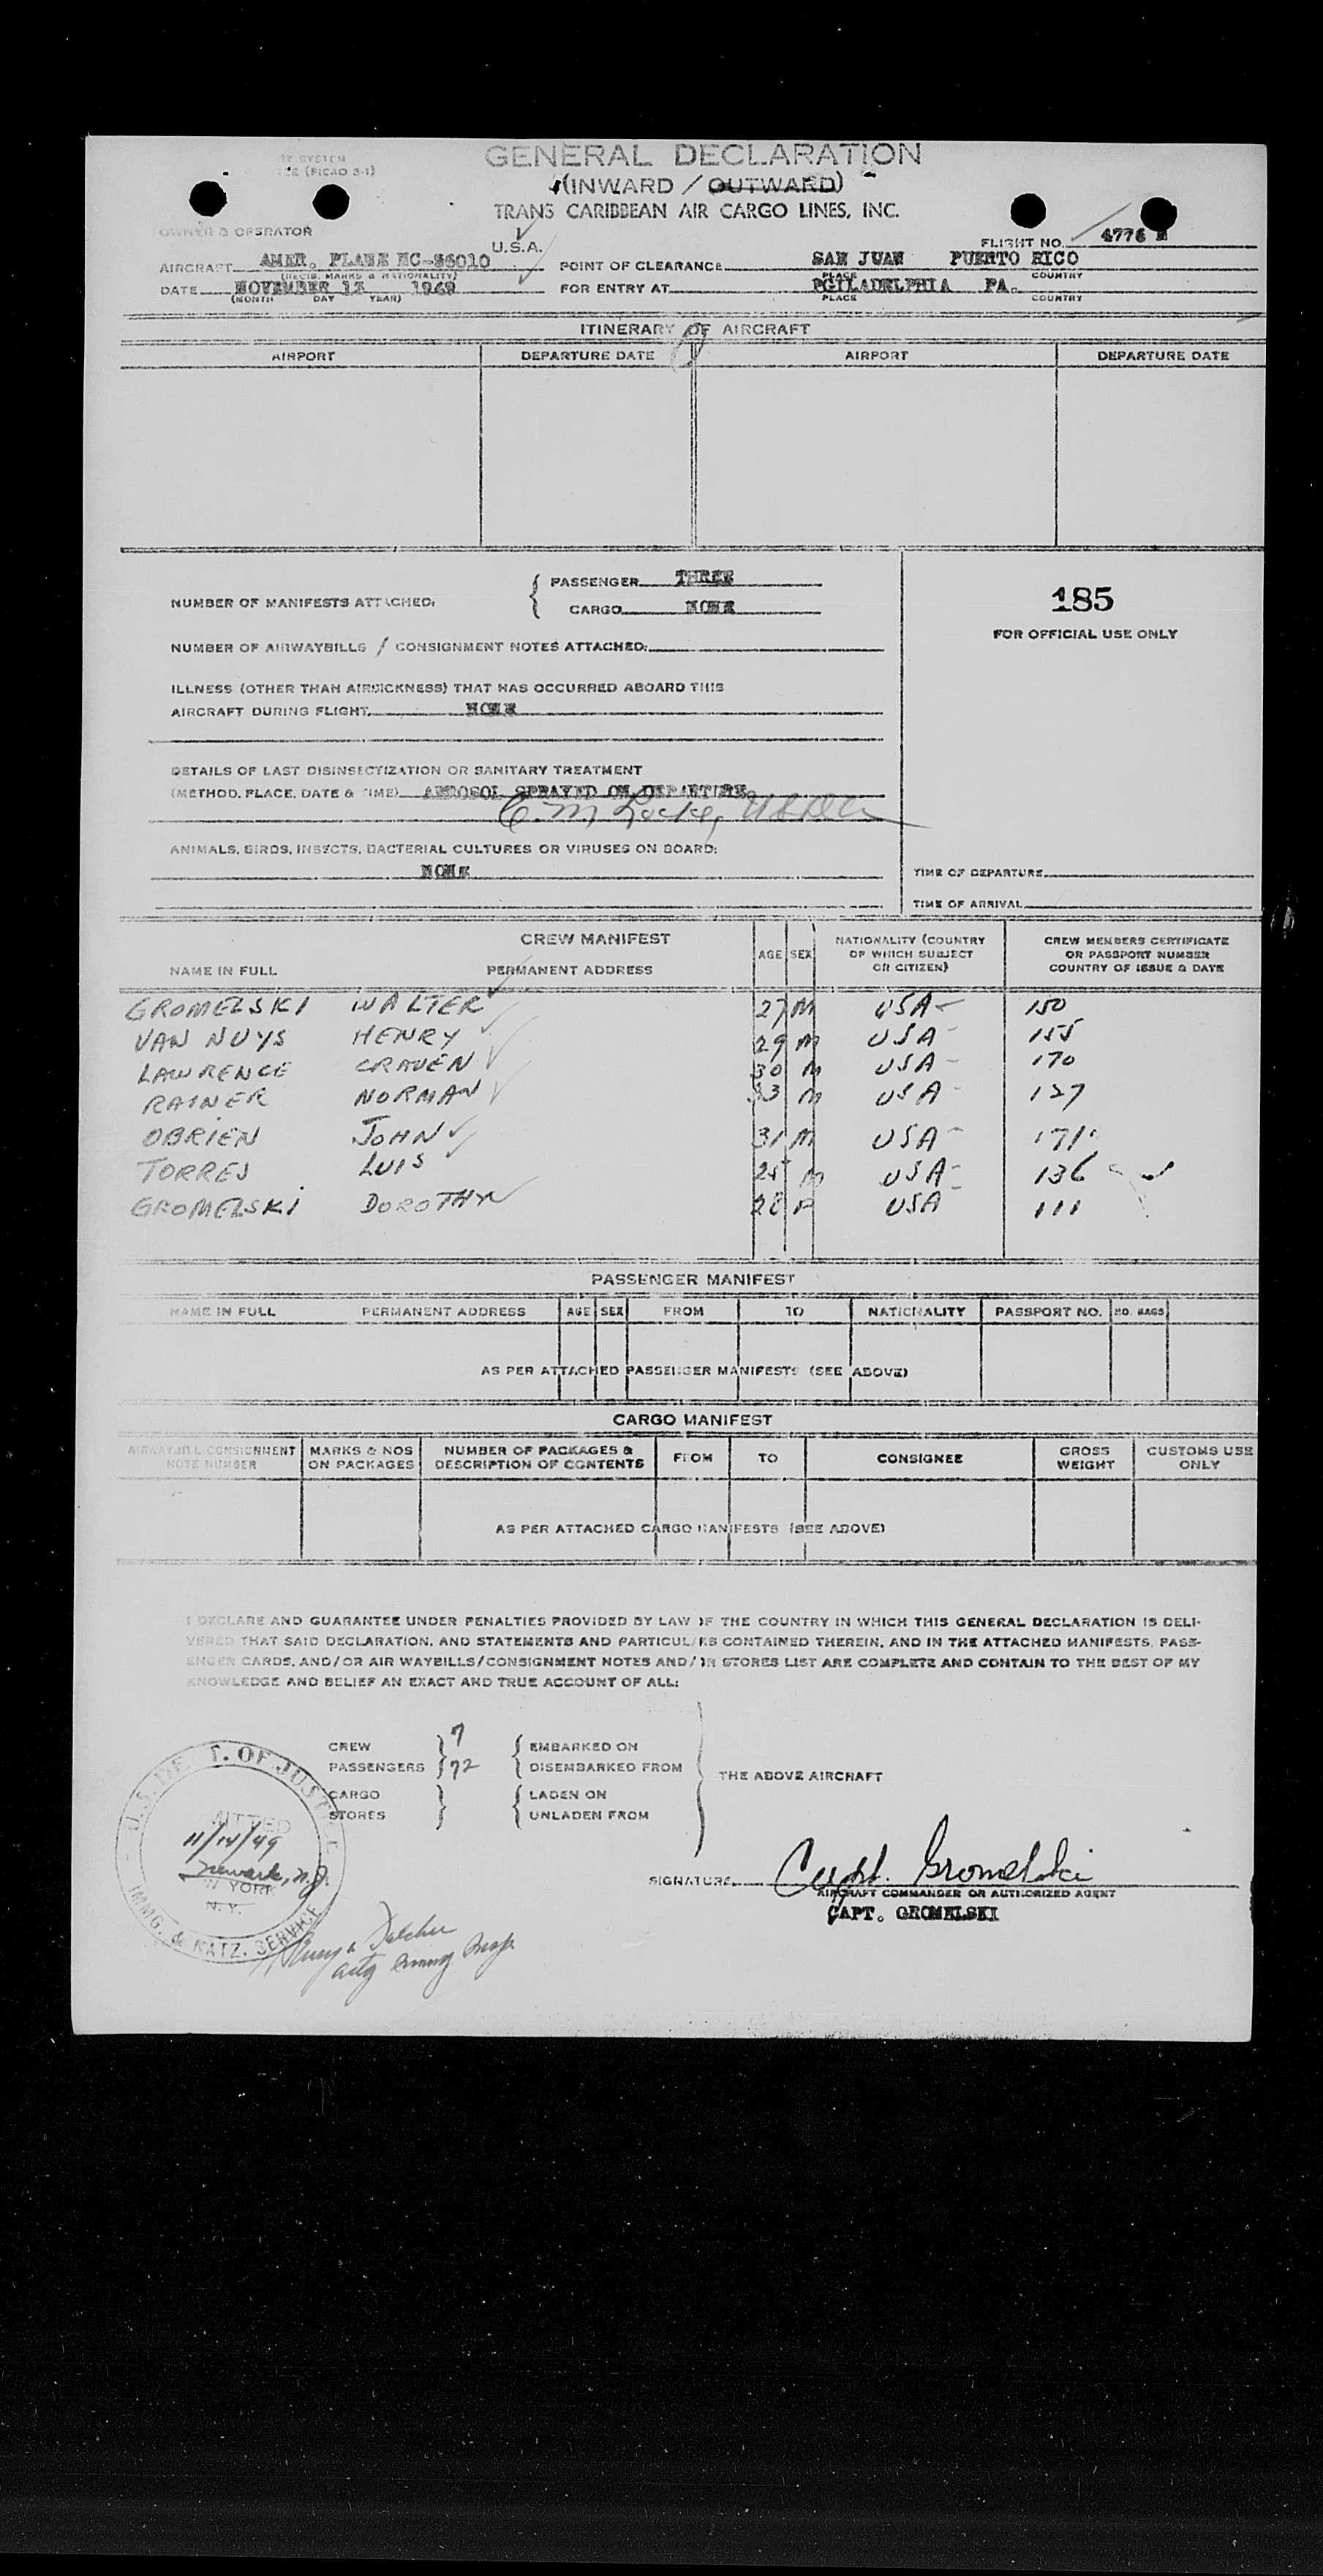 GENERAL DECLARATION
(INWARD / OUTWARD)
TRANS CARIBBEAN AIR CARGO LINES, INC.
OWNER & OPERATOR
U.S.A.
FLIGHT NO. 4776
AIRCRAFT AMER. PLANE NC-36010 POINT OF CLEARANCE SAN JUAN PUERTO RICO
(REGIS. MARKS & NATIONALITY) PLACE COUNTRY
DATE NOVEMBER 13 1949 FOR ENTRY AT PGILADELPHIA PA.
(MONTH DAY YEAR) PLACE COUNTRY
ITINERARY OF AIRCRAFT
AIRPORT DEPARTURE DATE AIRPORT DEPARTURE DATE
NUMBER OF MANIFESTS ATTACHED: PASSENGER THREE
CARGO NONE
185
FOR OFFICIAL USE ONLY
NUMBER OF AIRWAYBILLS / CONSIGNMENT NOTES ATTACHED:
ILLNESS (OTHER THAN AIRSICKNESS) THAT HAS OCCURRED ABOARD THIS
AIRCRAFT DURING FLIGHT NONE
DETAILS OF LAST DISINSECTIZATION OR SANITARY TREATMENT
(METHOD, PLACE, DATE & TIME) AEROSOL SPRAYED ON DEPARTURE
C. M. Locke, USDA
ANIMALS, BIRDS, INSECTS, BACTERIAL CULTURES OR VIRUSES ON BOARD:
NONE
TIME OF DEPARTURE
TIME OF ARRIVAL
CREW MANIFEST
NAME IN FULL PERMANENT ADDRESS AGE SEX NATIONALITY (COUNTRY OF WHICH SUBJECT OR CITIZEN) CREW MEMBERS CERTIFICATE OR PASSPORT NUMBER COUNTRY OF ISSUE & DATE
GROMELSKI WALTER 27 M USA 150
VAN NUYS HENRY 29 M USA 155
LAWRENCE CRAVEN 30 M USA 170
RAINER NORMAN 33 M USA 127
OBRIEN JOHN 31 M USA 171
TORRES LUIS 25 M USA 136
GROMELSKI DOROTHY 28 F USA 111
PASSENGER MANIFEST
NAME IN FULL PERMANENT ADDRESS AGE SEX FROM TO NATIONALITY PASSPORT NO. NO. BAGS
AS PER ATTACHED PASSENGER MANIFESTS (SEE ABOVE)
CARGO MANIFEST
AIRWAYBILL CONSIGNMENT NOTE NUMBER MARKS & NOS ON PACKAGES NUMBER OF PACKAGES & DESCRIPTION OF CONTENTS FROM TO CONSIGNEE GROSS WEIGHT CUSTOMS USE ONLY
AS PER ATTACHED CARGO MANIFESTS (SEE ABOVE)
I DECLARE AND GUARANTEE UNDER PENALTIES PROVIDED BY LAW OF THE COUNTRY IN WHICH THIS GENERAL DECLARATION IS DELI-
VERED THAT SAID DECLARATION, AND STATEMENTS AND PARTICULARS CONTAINED THEREIN, AND IN THE ATTACHED MANIFESTS, PASS-
ENGER CARDS, AND/OR AIR WAYBILLS/CONSIGNMENT NOTES AND/OR STORES LIST ARE COMPLETE AND CONTAIN TO THE BEST OF MY
KNOWLEDGE AND BELIEF AN EXACT AND TRUE ACCOUNT OF ALL:
CREW 7 EMBARKED ON
PASSENGERS 72 DISEMBARKED FROM
THE ABOVE AIRCRAFT
CARGO LADEN ON
STORES UNLADEN FROM
U.S. DEPT. OF JUSTICE
ADMITTED
11/14/49
Newark, N.J.
N. Y.
IMMG. & NATZ. SERVICE
SIGNATURE Capt. Gromelski
AIRCRAFT COMMANDER OR AUTHORIZED AGENT
CAPT. GROMELSKI
actg Immig Insp